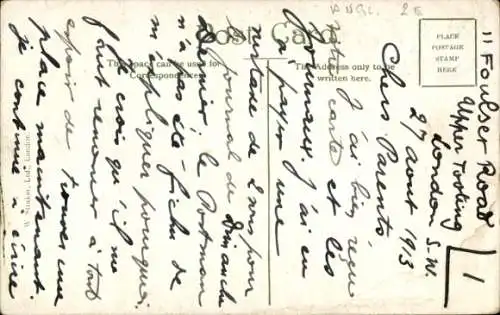 ANGL.
Post Card.
This space can be used for
Correspondence
The Address only to be
written here.
PLACE
POSTAGE
STAMP
HERE
W. Straker, Ltd., London.
11 Foulser Road
Upper Tooting
London S.W.
27 août 1913
1
Chers Parents
J'ai bien reçu
votre carte et les
journaux. J'ai eu
à payer une
surtaxe de 2 sous pour
le journal de Dimanche
dernier; le Postman
n'a pas de fichu de
m'expliquer pourquoi.
Je crois qu'il me
faut renoncer à tout
espoir de trouver une
place maintenant.
je continue à écrire